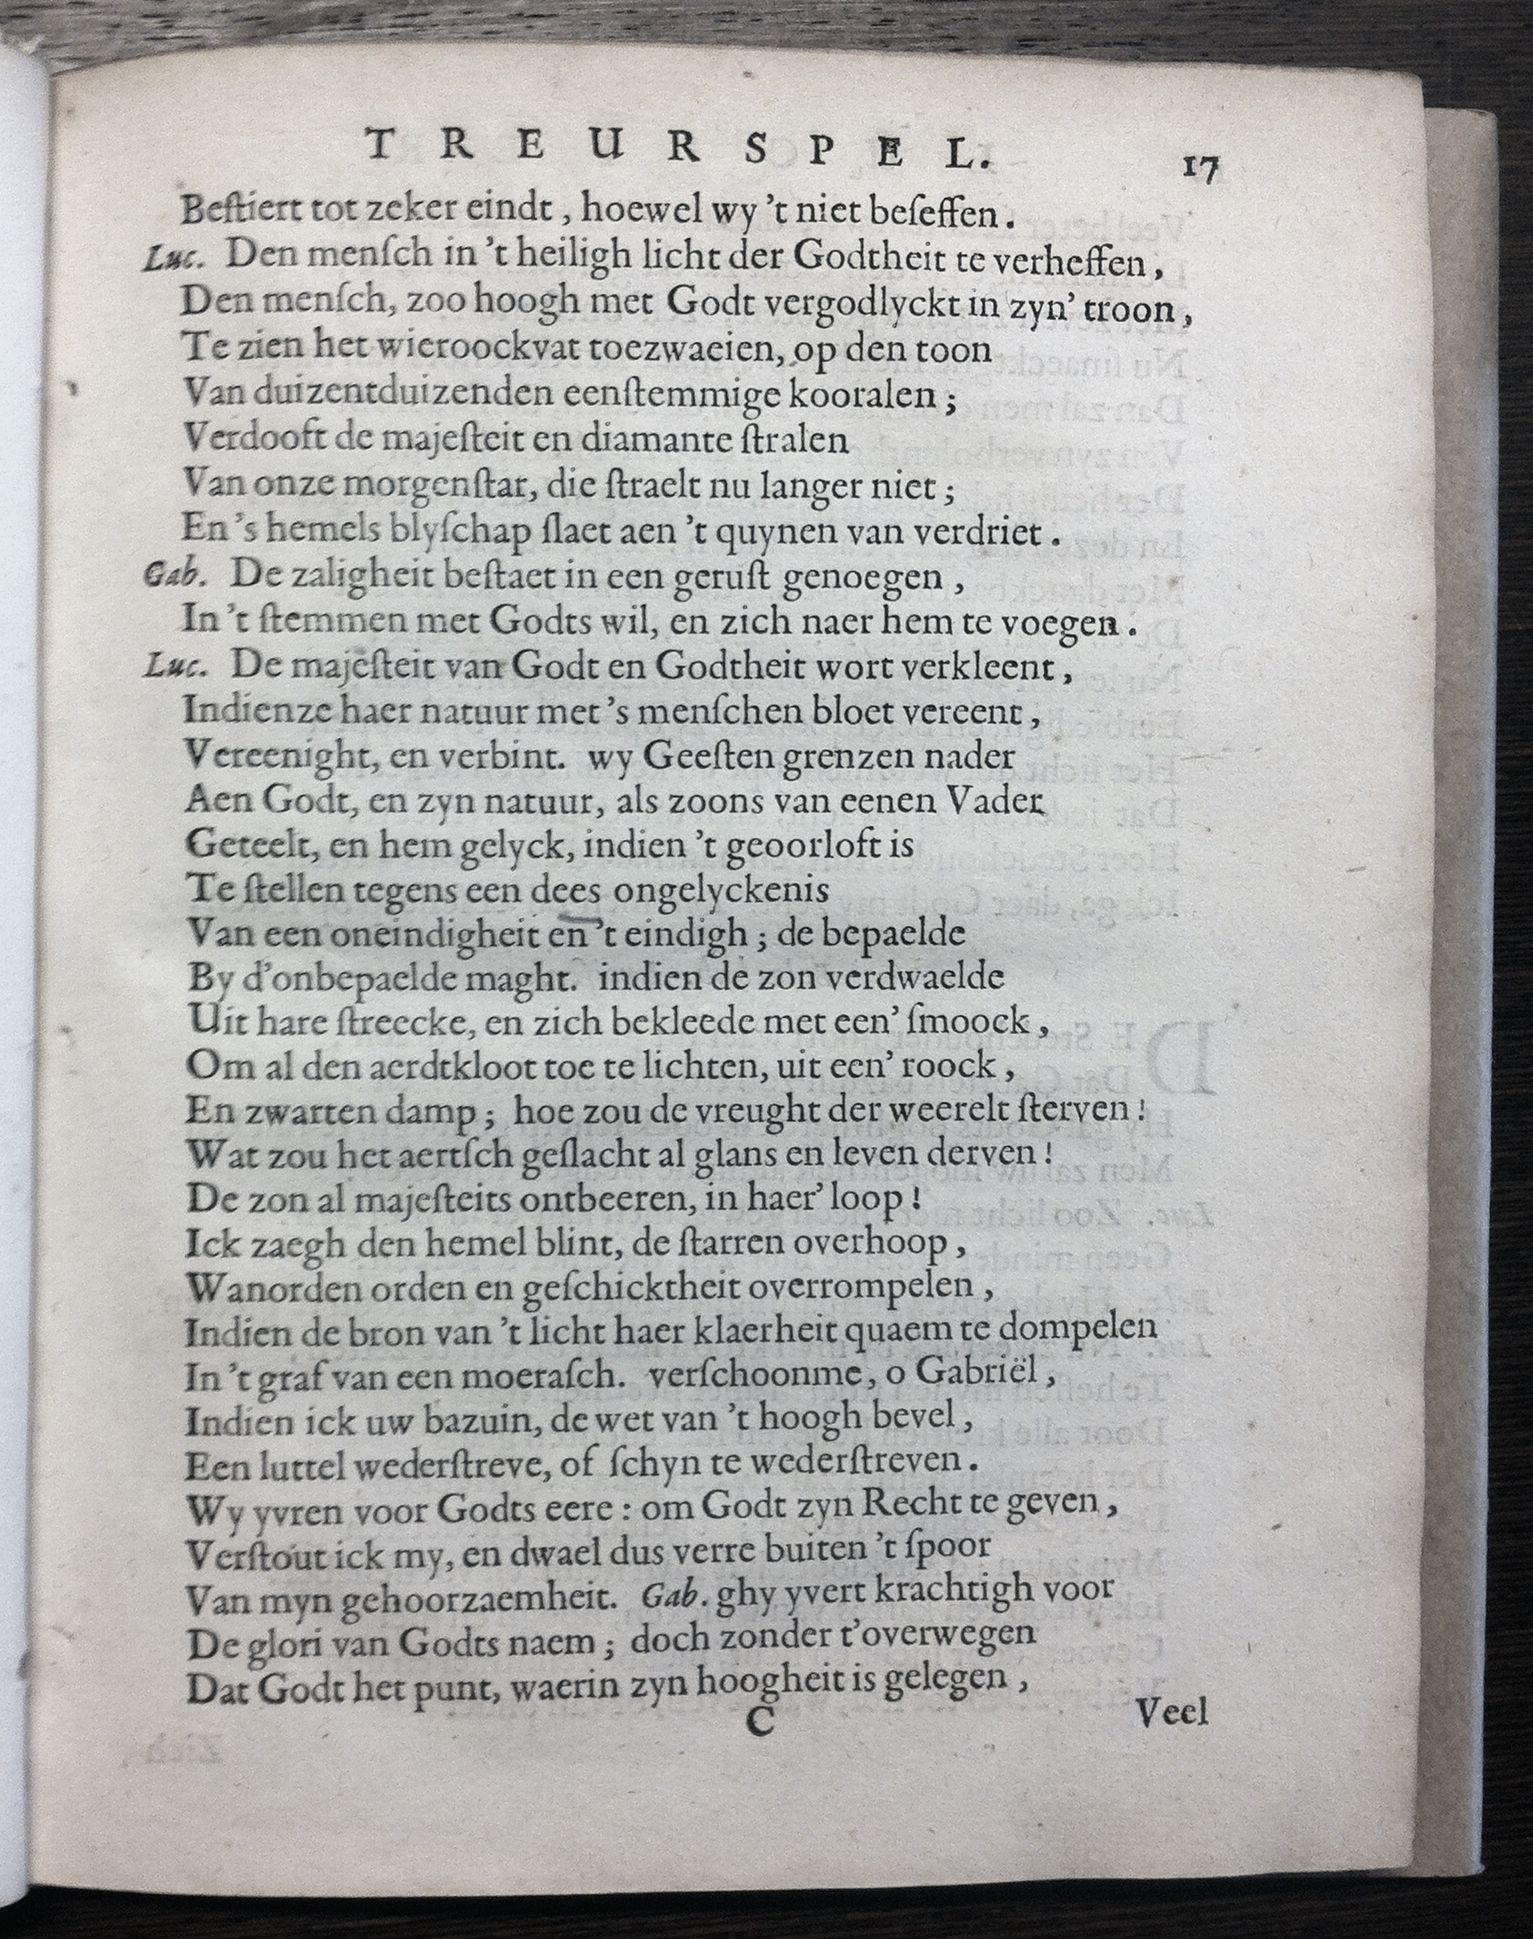 TREURSPEL. 17
Beſtiert tot zeker eindt, hoewel wy 't niet beſeffen.
Luc. Den menſch in 't heiligh licht der Godtheit te verheffen,
Den menſch, zoo hoogh met Godt vergodlyckt in zyn' troon,
Te zien het wieroockvat toezwaeien, op den toon
Van duizentduizenden eenſtemmige kooralen;
Verdooft de majeſteit en diamante ſtralen
Van onze morgenſtar, die ſtraelt nu langer niet;
En 's hemels blyſchap ſlaet aen 't quynen van verdriet.
Gab. De zaligheit beſtaet in een geruſt genoegen,
In 't ſtemmen met Godts wil, en zich naer hem te voegen.
Luc. De majeſteit van Godt en Godtheit wort verkleent,
Indienze haer natuur met 's menſchen bloet vereent,
Vereenight, en verbint. wy Geeſten grenzen nader
Aen Godt, en zyn natuur, als zoons van eenen Vader
Geteelt, en hem gelyck, indien 't geoorloft is
Te ſtellen tegens een dees ongelyckenis
Van een oneindigheit en 't eindigh; de bepaelde
By d'onbepaelde maght. indien de zon verdwaelde
Uit hare ſtreecke, en zich bekleede met een' ſmoock,
Om al den aerdtkloot toe te lichten, uit een' roock,
En zwarten damp; hoe zou de vreught der weerelt ſterven!
Wat zou het aertſch geſlacht al glans en leven derven!
De zon al majeſteits ontbeeren, in haer' loop!
Ick zaegh den hemel blint, de ſtarren overhoop,
Wanorden orden en geſchicktheit overrompelen,
Indien de bron van 't licht haer klaerheit quaem te dompelen
In 't graf van een moeraſch. verſchoonme, o Gabriël,
Indien ick uw bazuin, de wet van 't hoogh bevel,
Een luttel wederſtreve, of ſchyn te wederſtreven.
Wy yvren voor Godts eere: om Godt zyn Recht te geven,
Verſtout ick my, en dwael dus verre buiten 't ſpoor
Van myn gehoorzaemheit. Gab. ghy yvert krachtigh voor
De glori van Godts naem; doch zonder t'overwegen
Dat Godt het punt, waerin zyn hoogheit is gelegen,
C Veel